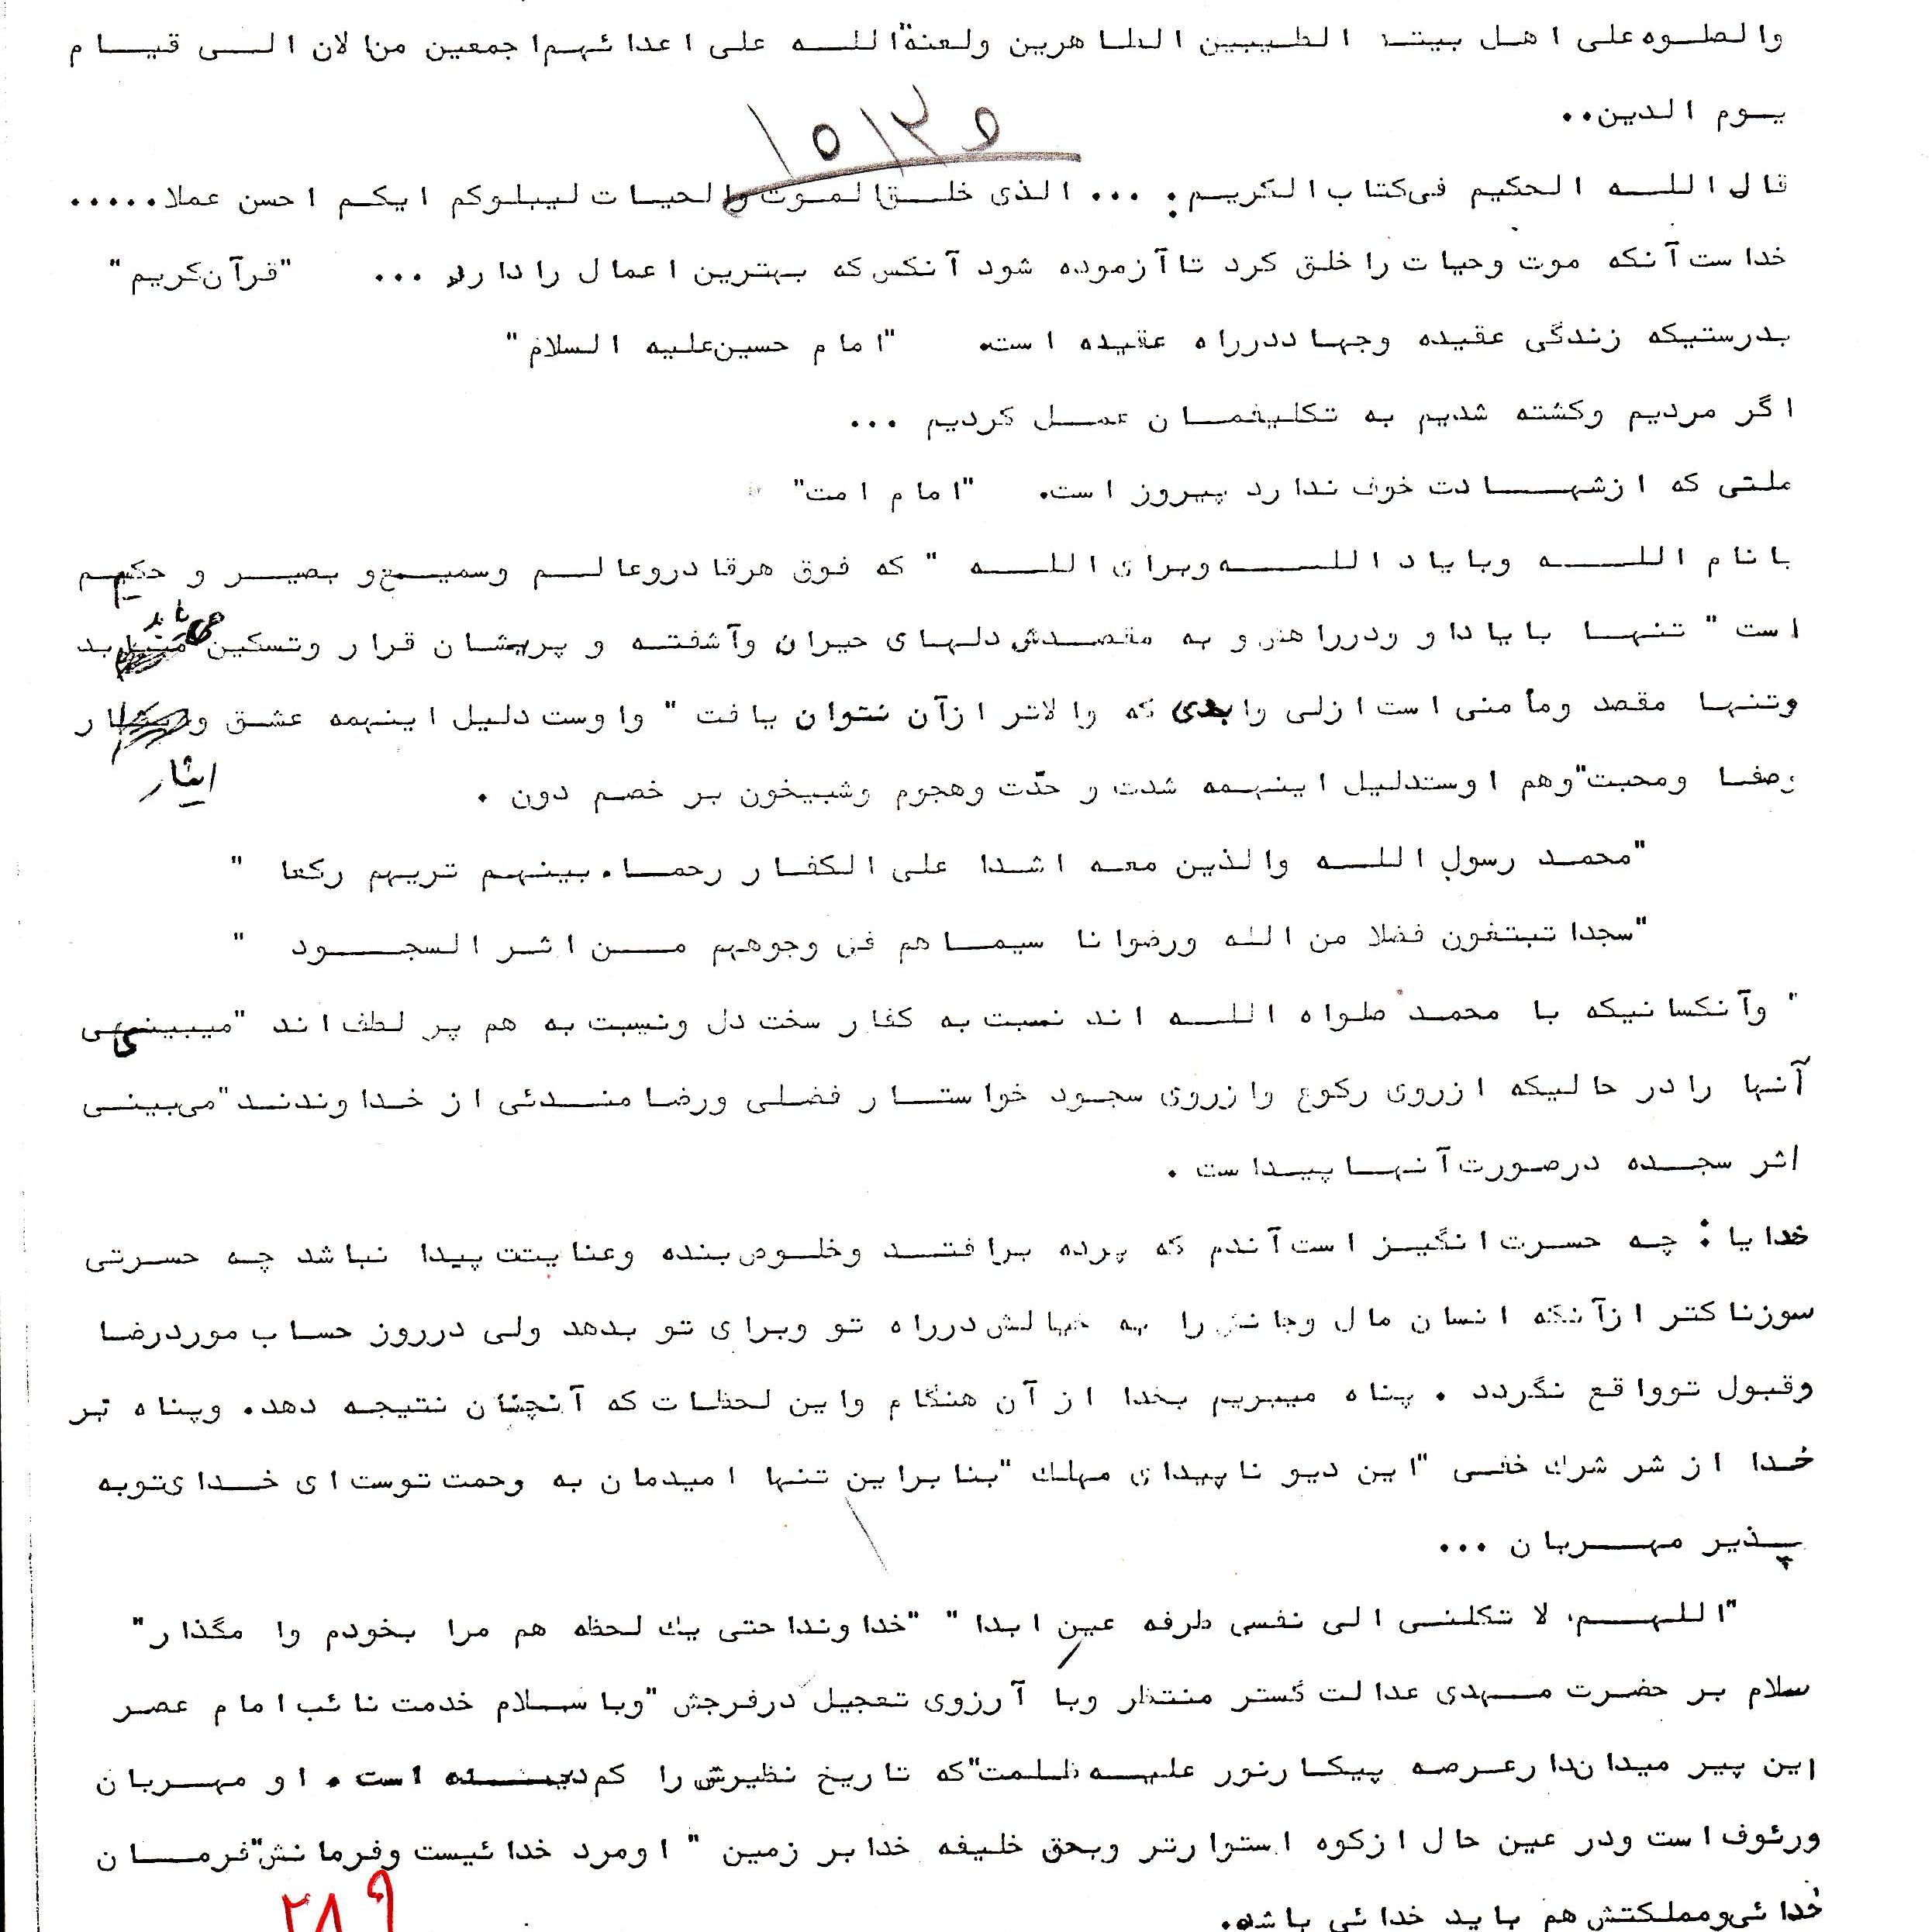 والصلوه علی اهل بیته الطیبین الطاهرین ولعنة الله علی اعدائهم اجمعین من الان الی قیام
یوم الدین..
۱۵۱۳۵
قال الله الحکیم فی کتاب الکریم: ... الذی خلق الموت والحیات لیبلوکم ایکم احسن عملا.....
خداست آنکه موت وحیات را خلق کرد تا آزموده شود آنکس که بهترین اعمال را دارد ... "قرآن کریم"
بدرستیکه زندگی عقیده وجهاد درراه عقیده است. "امام حسین علیه السلام"
اگر مردیم وکشته شدیم به تکلیفمان عمل کردیم ...
ملتی که ازشهادت خوف ندارد پیروز است. "امام امت"
بانام الله وبایاد الله وبرای الله " که فوق هرقادروعالم وسمیع و بصیر و حکیم
است " تنها بایاداو ودرراهش و به مقصدش دلهای حیران وآشفته و پریشان قرار وتسکین می یابد
وتنها مقصد ومأمنی است ازلی وابدی که والاتر ازآن نتوان یافت " واوست دلیل اینهمه عشق و ایثار
وصفا ومحبت"وهم اوستدلیل اینهمه شدت و حدّت وهجوم وشبیخون بر خصم دون .
"محمد رسول الله والذین معه اشدا علی الکفار رحما. بینهم تریهم رکعا "
"سجدا تبتغون فضلا من الله ورضوانا سیماهم فی وجوههم من اثر السجود "
" وآنکسانیکه با محمد صلواه الله اند نسبت به کفار سخت دل ونسبت به هم پر لطف اند "میبینی
آنها را در حالیکه ازروی رکوع وازروی سجود خواستار فضلی ورضامندئی از خداوندند"می‌بینی
اثر سجده درصورت آنها پیداست .
خدایا : چه حسرت انگیز است آندم که پرده برافتد وخلوص بنده وعنایتت پیدا نباشد چه حسرتی
سوزناکتر ازآنکه انسان مال وجانش را به خیالش درراه تو وبرای تو بدهد ولی درروز حساب موردرضا
وقبول توواقع نگردد . پناه میبریم بخدا از آن هنگام واین لحظات که آنچنان نتیجه دهد. وپناه بر
خدا از شر شرك خفی "این دیو ناپیدای مهلك "بنابراین تنها امیدمان به وحمت توست ای خدای توبه
پذیر مهربان ...
"اللهم، لا تکلنی الی نفسی طرفه عین ابدا " "خداوندا حتی یك لحظه هم مرا بخودم وا مگذار"
سلام بر حضرت مهدی عدالت گستر منتظر وبا آرزوی تعجیل درفرجش "وبا سلام خدمت نائب امام عصر
این پیر میداندار عرصه پیکارنور علیه ظلمت"که تاریخ نظیرش را کم دیده است. او مهربان
ورئوف است ودر عین حال ازکوه استوارتر وبحق خلیفه خدا بر زمین " اومرد خدائیست وفرمانش"فرمان
خدائی ومملکتش هم باید خدائی باشد.
۲۸۹